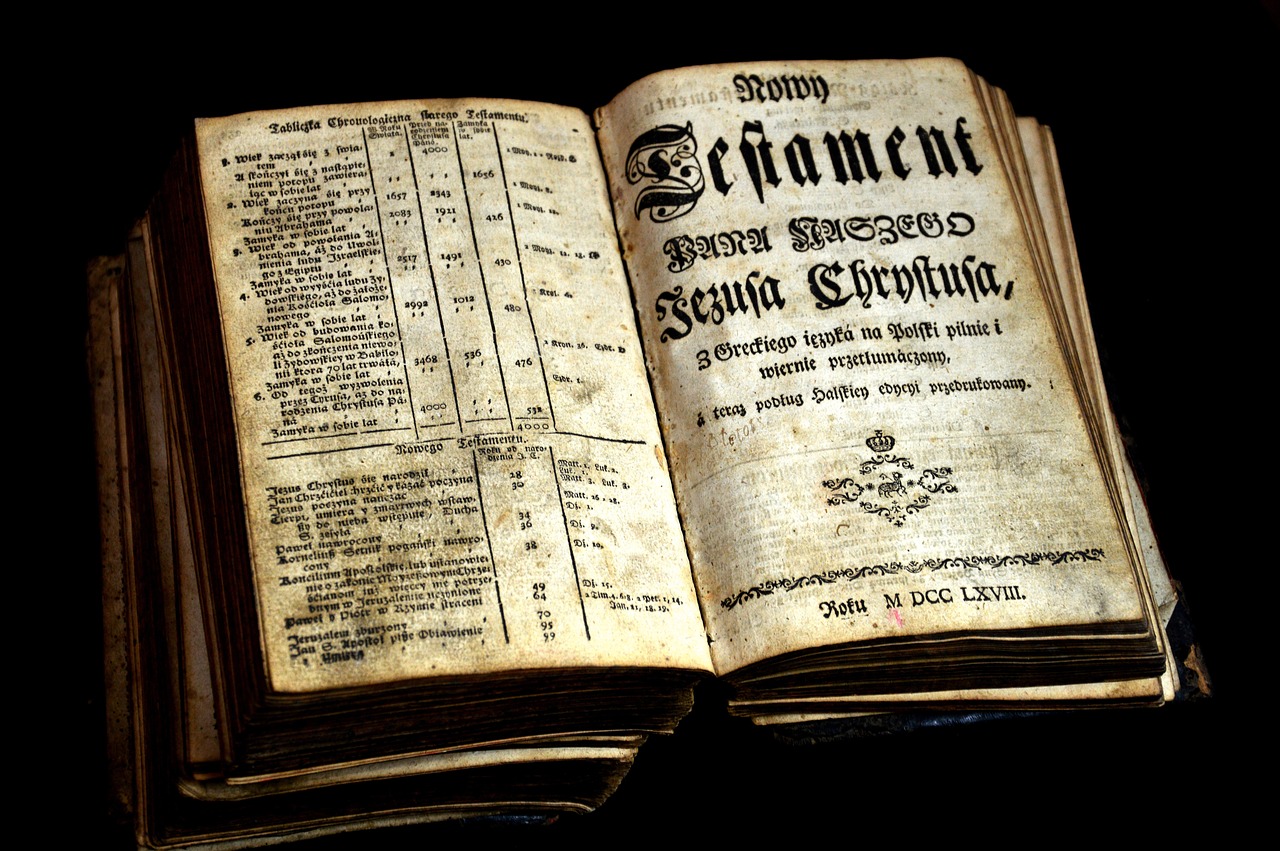 Tabliczka Chronologiczna starego Testamentu.
W Roku Swiata.
Przed narodzeniem Chrystusa Pana.
Zamyka w sobie lat.
1. Wiek zaczął się z światem 1 4000 1 Moy. 1
A skończył się z nastąpieniem potopu zawierając w sobie lat 1656
2. Wiek zaczyna się przy końcu potopu 1657 2343 1 Moy. 8.
Kończy się przy powołaniu Abrahama 2083 1921 1 Moy. 12.
Zamyka w sobie lat 426
3. Wiek od powołania Abrahama, aż do Uwolnienia ludu Izraelskiego z Egiptu 2517 1491
Zamyka w sobie lat 430
4. Wiek od wyyścia ludu Żydowskiego, aż do założenia Kościoła Salomonowego 2992 1012
Zamyka w sobie lat 480
5. Wiek od budowania kościoła Salomońskiego aż do zkończenia niewoli Żydowskiey w Babilonii ktora 70 lat trwała, 3468 536
Zamyka w sobie lat 476
6. Od tegoż wyzwolenia przez Cyrusa, aż do narodzenia Chrystusa Pana 4000
Zamyka w sobie lat 532
4000
Nowego Testamentu.
Roku od narodzenia J. C.
Jezus Chrystus się narodził
Jan Chrzciciel chrzcić y kazać poczyna 28
Jezus poczyna nauczać 30
Cierpi, umiera y zmartwych wstaw,
szy do nieba wstępuie, Ducha
S. zsyła 34
Paweł nawrocony 36 Dj. 9.
Korneliusz Setnik pogański nawro-
cony 38 Dj. 10.
Koncilium Apostolskie, lub ustanowie-
nie o zakonie Moyżeszowym Chrze-
ścianom już więcey nie potrze-
bnym w Jeruzalem uczynione 49 Dj. 15.
Paweł y Piotr w Rzymie straceni 64
Jeruzalem zburzony 70
Jan S. Apostoł pisze Obiawienie 95
y umiera 99
Nowy
Testament
PANA NASZEGO
Jezusa Chrystusa,
Z Greckiego ięzyká na Polski pilnie i
wiernie przetłumáczony,
á teraz podług Halskiey edycyi przedrukowany.
Roku M DCC LXVIII.